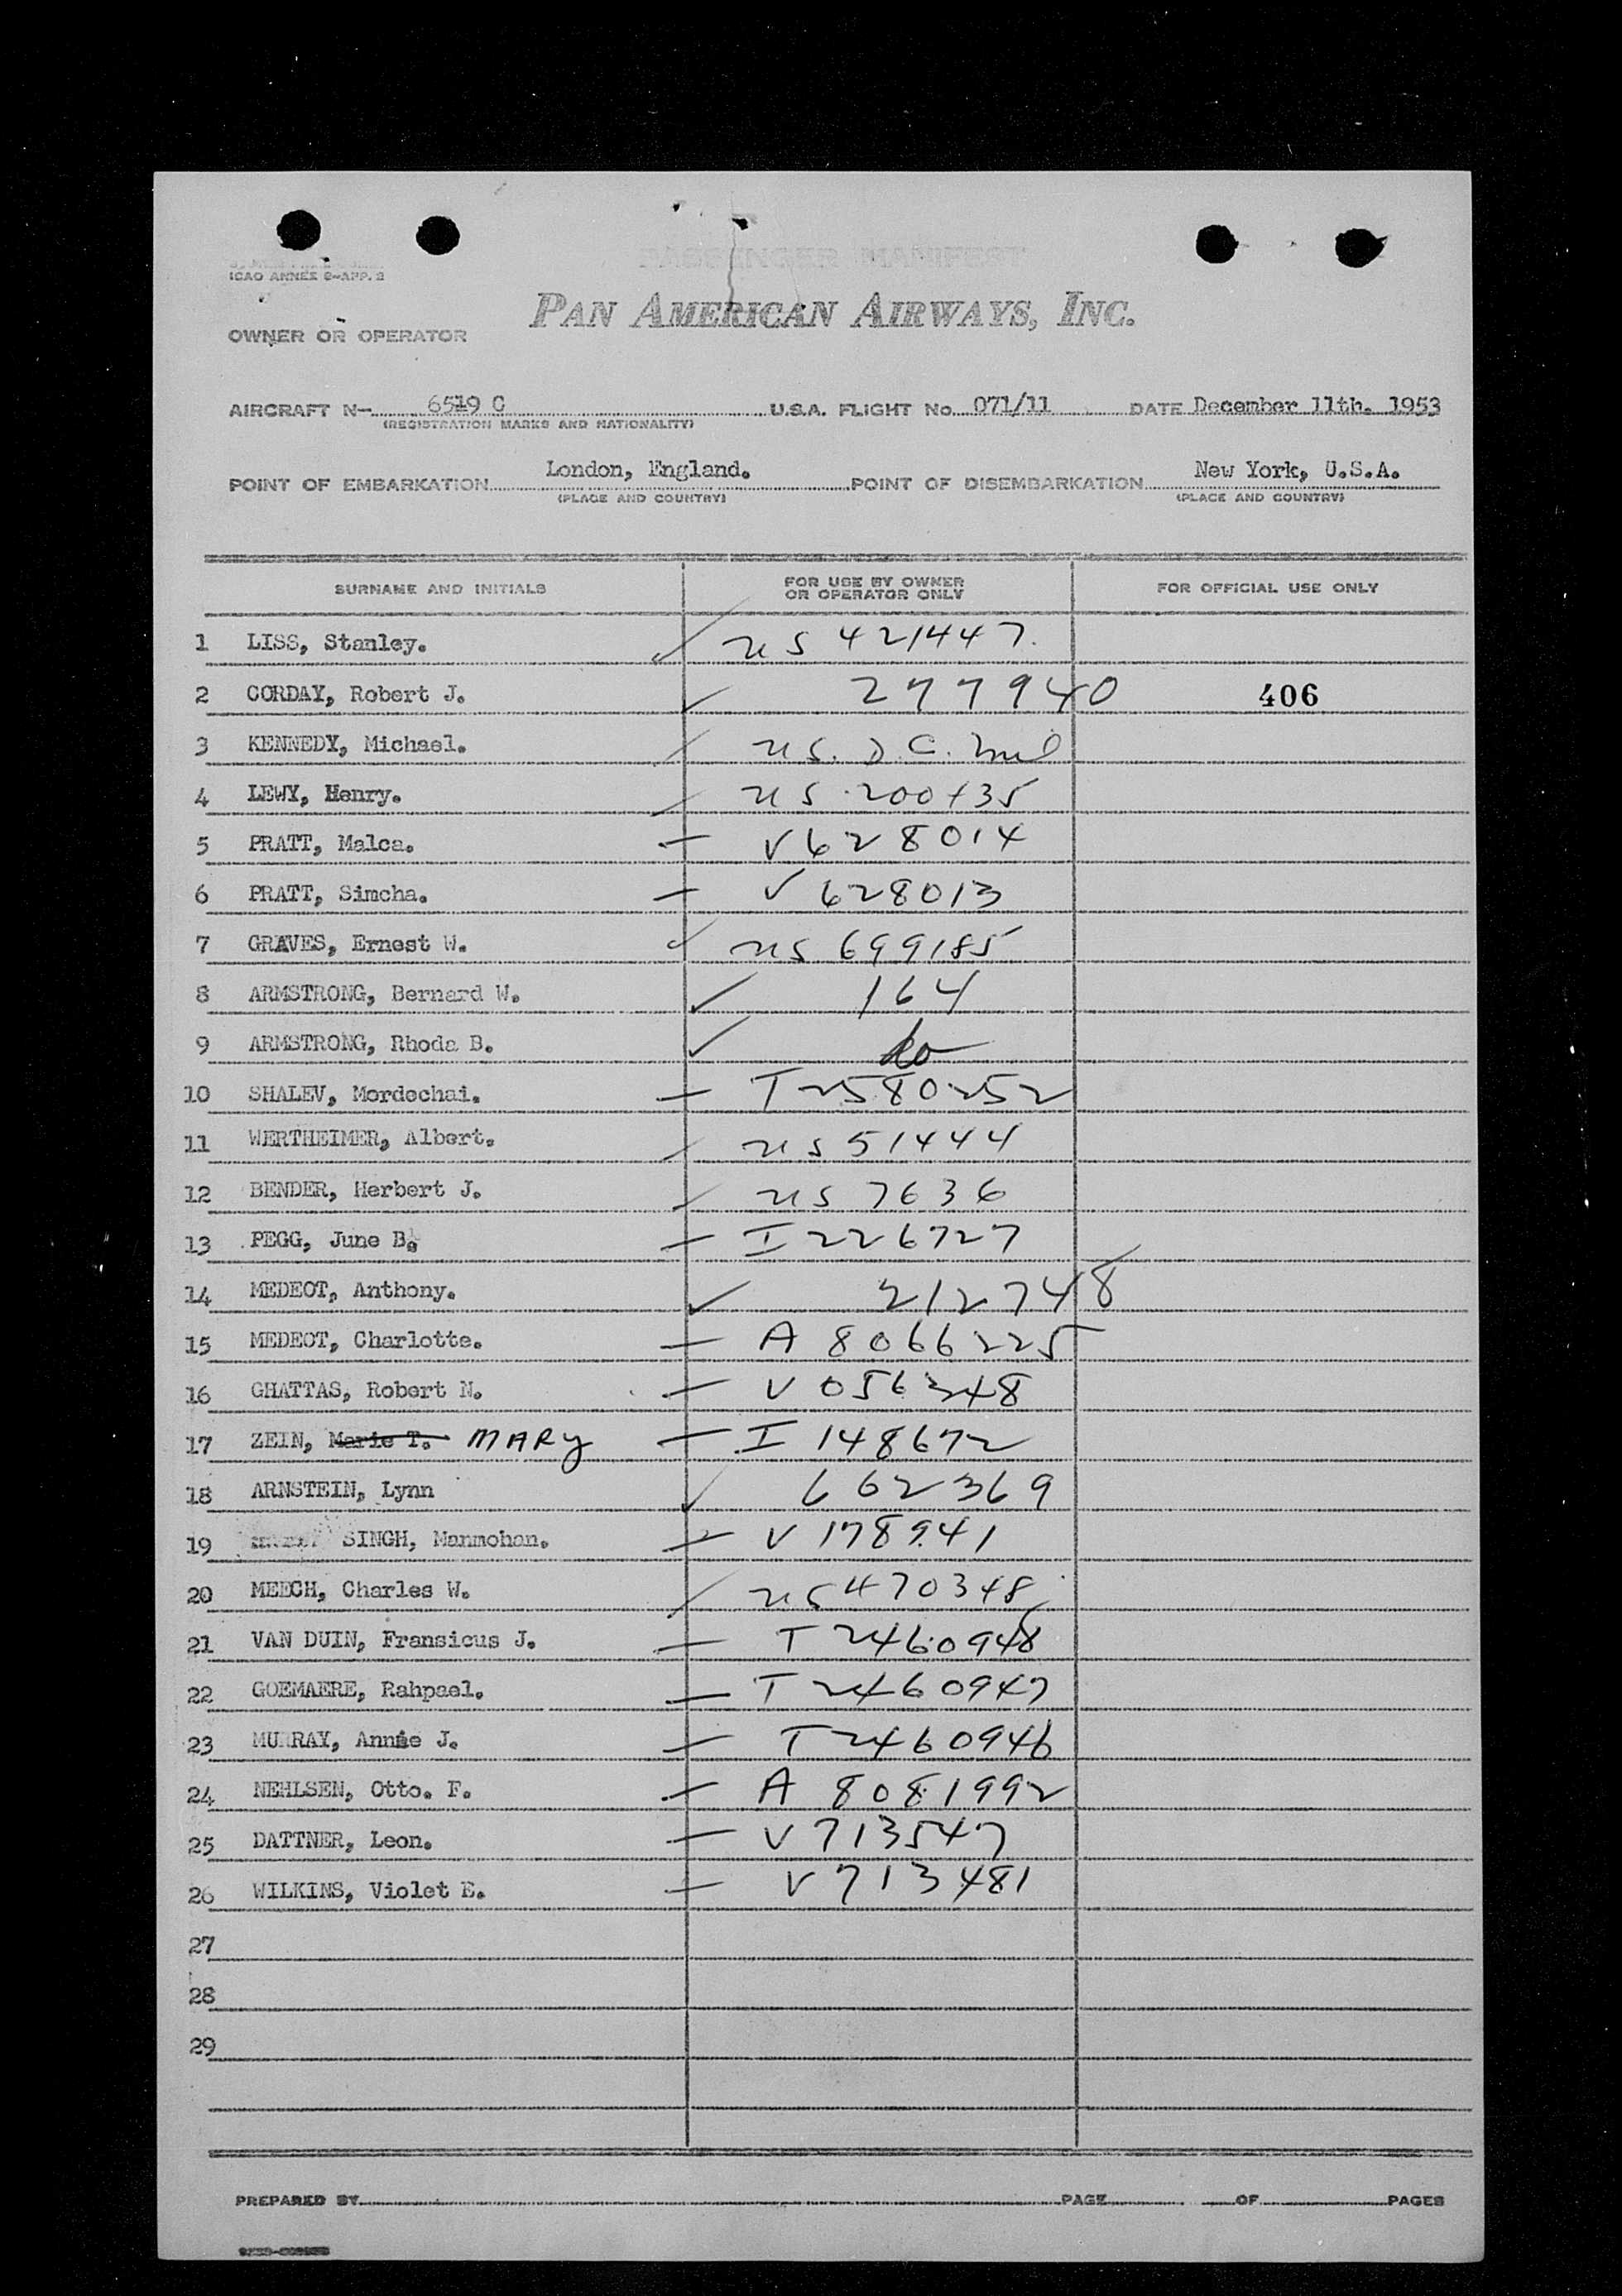 PASSENGER MANIFEST
ICAO ANNEX 9-APP. 3
PAN AMERICAN AIRWAYS, INC.
OWNER OR OPERATOR
AIRCRAFT N- 6519 C U.S.A. FLIGHT No. 071/11 DATE December 11th. 1953
(REGISTRATION MARKS AND NATIONALITY)
POINT OF EMBARKATION London, England. POINT OF DISEMBARKATION New York, U.S.A.
(PLACE AND COUNTRY) (PLACE AND COUNTRY)
SURNAME AND INITIALS FOR USE BY OWNER OR OPERATOR ONLY FOR OFFICIAL USE ONLY
1 LISS, Stanley. ✓ US 421447.
2 CORDAY, Robert J. ✓ 277940 406
3 KENNEDY, Michael. US. D.C.
4 LEWY, Henry. US 200435
5 PRATT, Malca. — V628014
6 PRATT, Simcha. — V 628013
7 GRAVES, Ernest W. ✓ US 699185
8 ARMSTRONG, Bernard W. ✓ 164
9 ARMSTRONG, Rhoda B. ✓ do
10 SHALEV, Mordechai. — T2580252
11 WERTHEIMER, Albert. US 51444
12 BENDER, Herbert J. US 7636
13 PEGG, June B. — I 226727
14 MEDEOT, Anthony. ✓ 212748
15 MEDEOT, Charlotte. — A 8066225
16 GHATTAS, Robert N. — V 056348
17 ZEIN, Marie T. MARY — I 148672
18 ARNSTEIN, Lynn ✓ 662369
19 SINGH, Manmohan. — V 178941
20 MEECH, Charles W. US 470348
21 VAN DUIN, Fransicus J. — T 2460948
22 GOEMAERE, Rahpael. — T 2460947
23 MURRAY, Annie J. — T 2460946
24 NEHLSEN, Otto. F. — A 8081992
25 DATTNER, Leon. — V 713547
26 WILKINS, Violet E. — V 713481
27
28
29
PREPARED BY PAGE OF PAGES